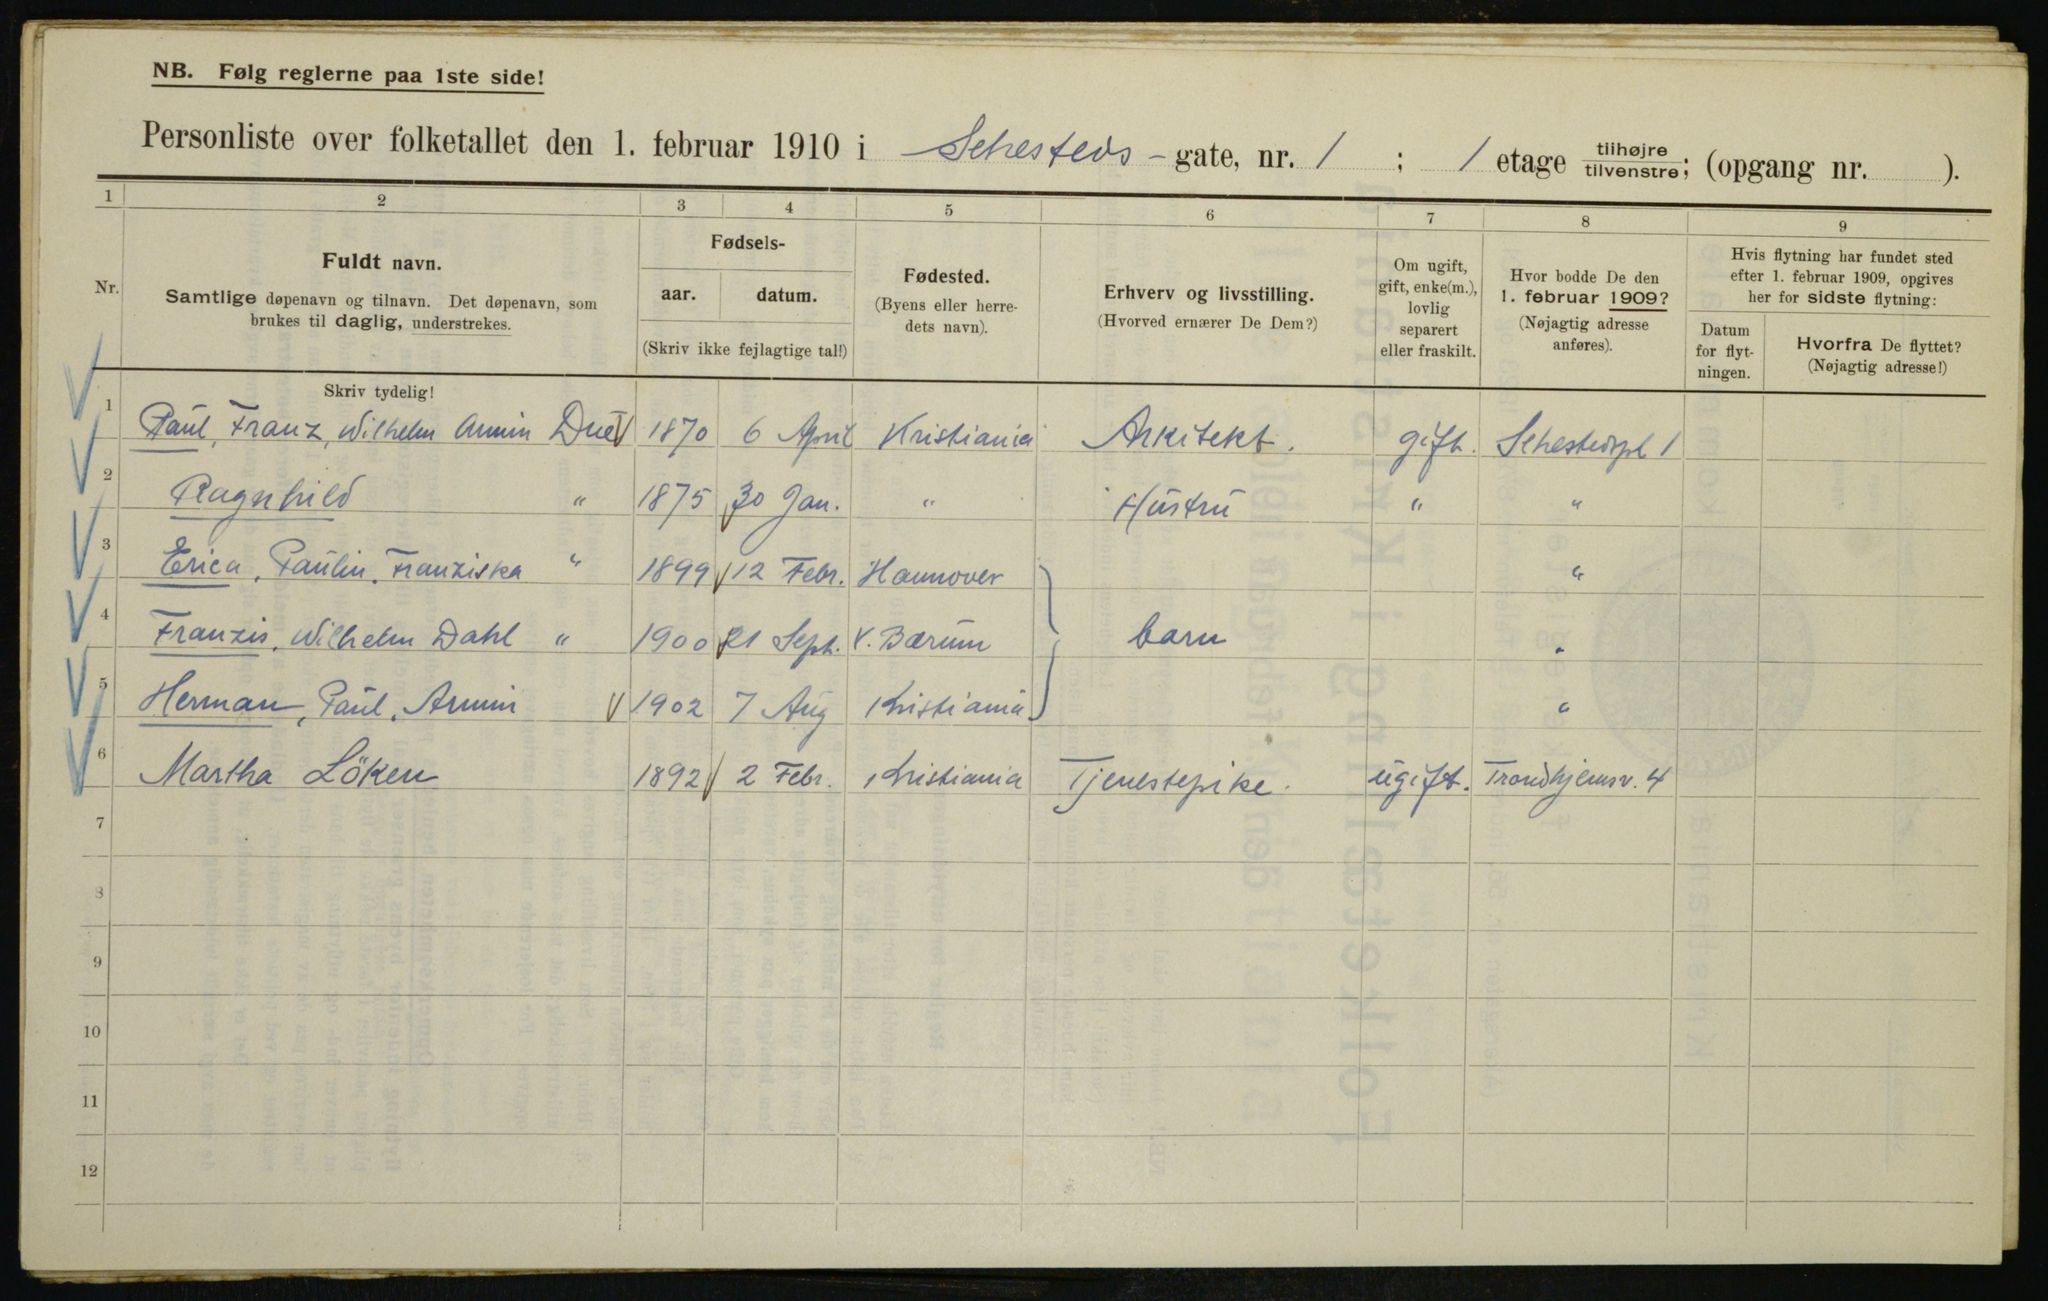 NB. Følg reglerne paa 1ste side!
Personliste over folketallet den 1. februar 1910 i Sehesteds - gate, nr. 1 ; 1 etage tilhøjre tilvenstre; (opgang nr. ).
1 2 3 4 5 6 7 8 9
Nr.
Fuldt navn.
Samtlige døpenavn og tilnavn. Det døpenavn, som
brukes til daglig, understrekes.
Fødsels-
aar. datum.
(Skriv ikke fejlagtige tal!)
Fødested.
(Byens eller herre-
dets navn).
Erhverv og livsstilling.
(Hvorved ernærer De Dem?)
Om ugift,
gift, enke(m.),
lovlig
separert
eller fraskilt.
Hvor bodde De den
1. februar 1909?
(Nøjagtig adresse
anføres).
Hvis flytning har fundet sted
efter 1. februar 1909, opgives
her for sidste flytning:
Datum
for flyt-
ningen.
Hvorfra De flyttet?
(Nøjagtig adresse!)
Skriv tydelig!
1 Paul, Franz, Wilhelm Armin Due 1870 6 April Kristiania Arkitekt. gift. Sehestedspl 1
2 Ragnhild " 1875 30 Jan. " Hustru " "
3 Erica, Paulin, Franziska " 1899 12 Febr. Hannover "
4 Franzis, Wilhelm Dahl " 1900 21 Sept. V. Bærum barn "
5 Herman, Paul, Armin 1902 7 Aug Kristiania "
6 Martha Löken 1892 2 Febr. Kristiania Tjenestepike. ugift. Trondhjemsv. 4
7
8
9
10
11
12